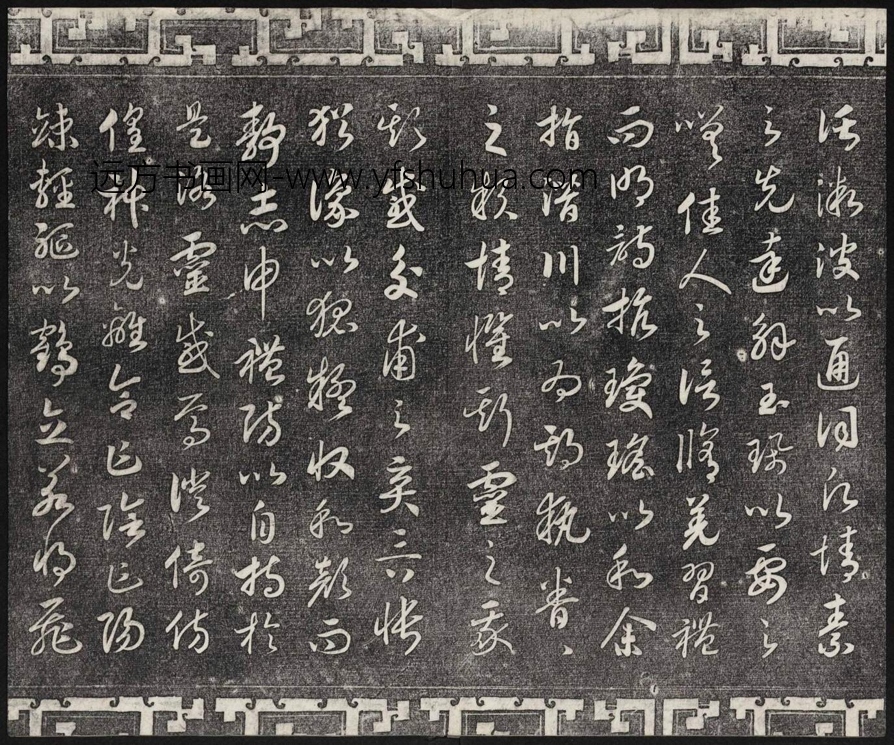 託微波以通詞願情素
之先達解玉珮以要之
嗟佳人之信脩羌習禮
而明詩抗瓊瑤以和余
指潛川以為期執眷〻
之款情懼斯靈之我
欺感交甫之棄言悵
猶豫以狐疑收和顏而
靜志申禮防以自持於
是洛靈感焉徙倚彷
徨神光離合乍陰乍陽
竦輕軀以鶴立若將飛
远方书画网-www.yfshuhua.com